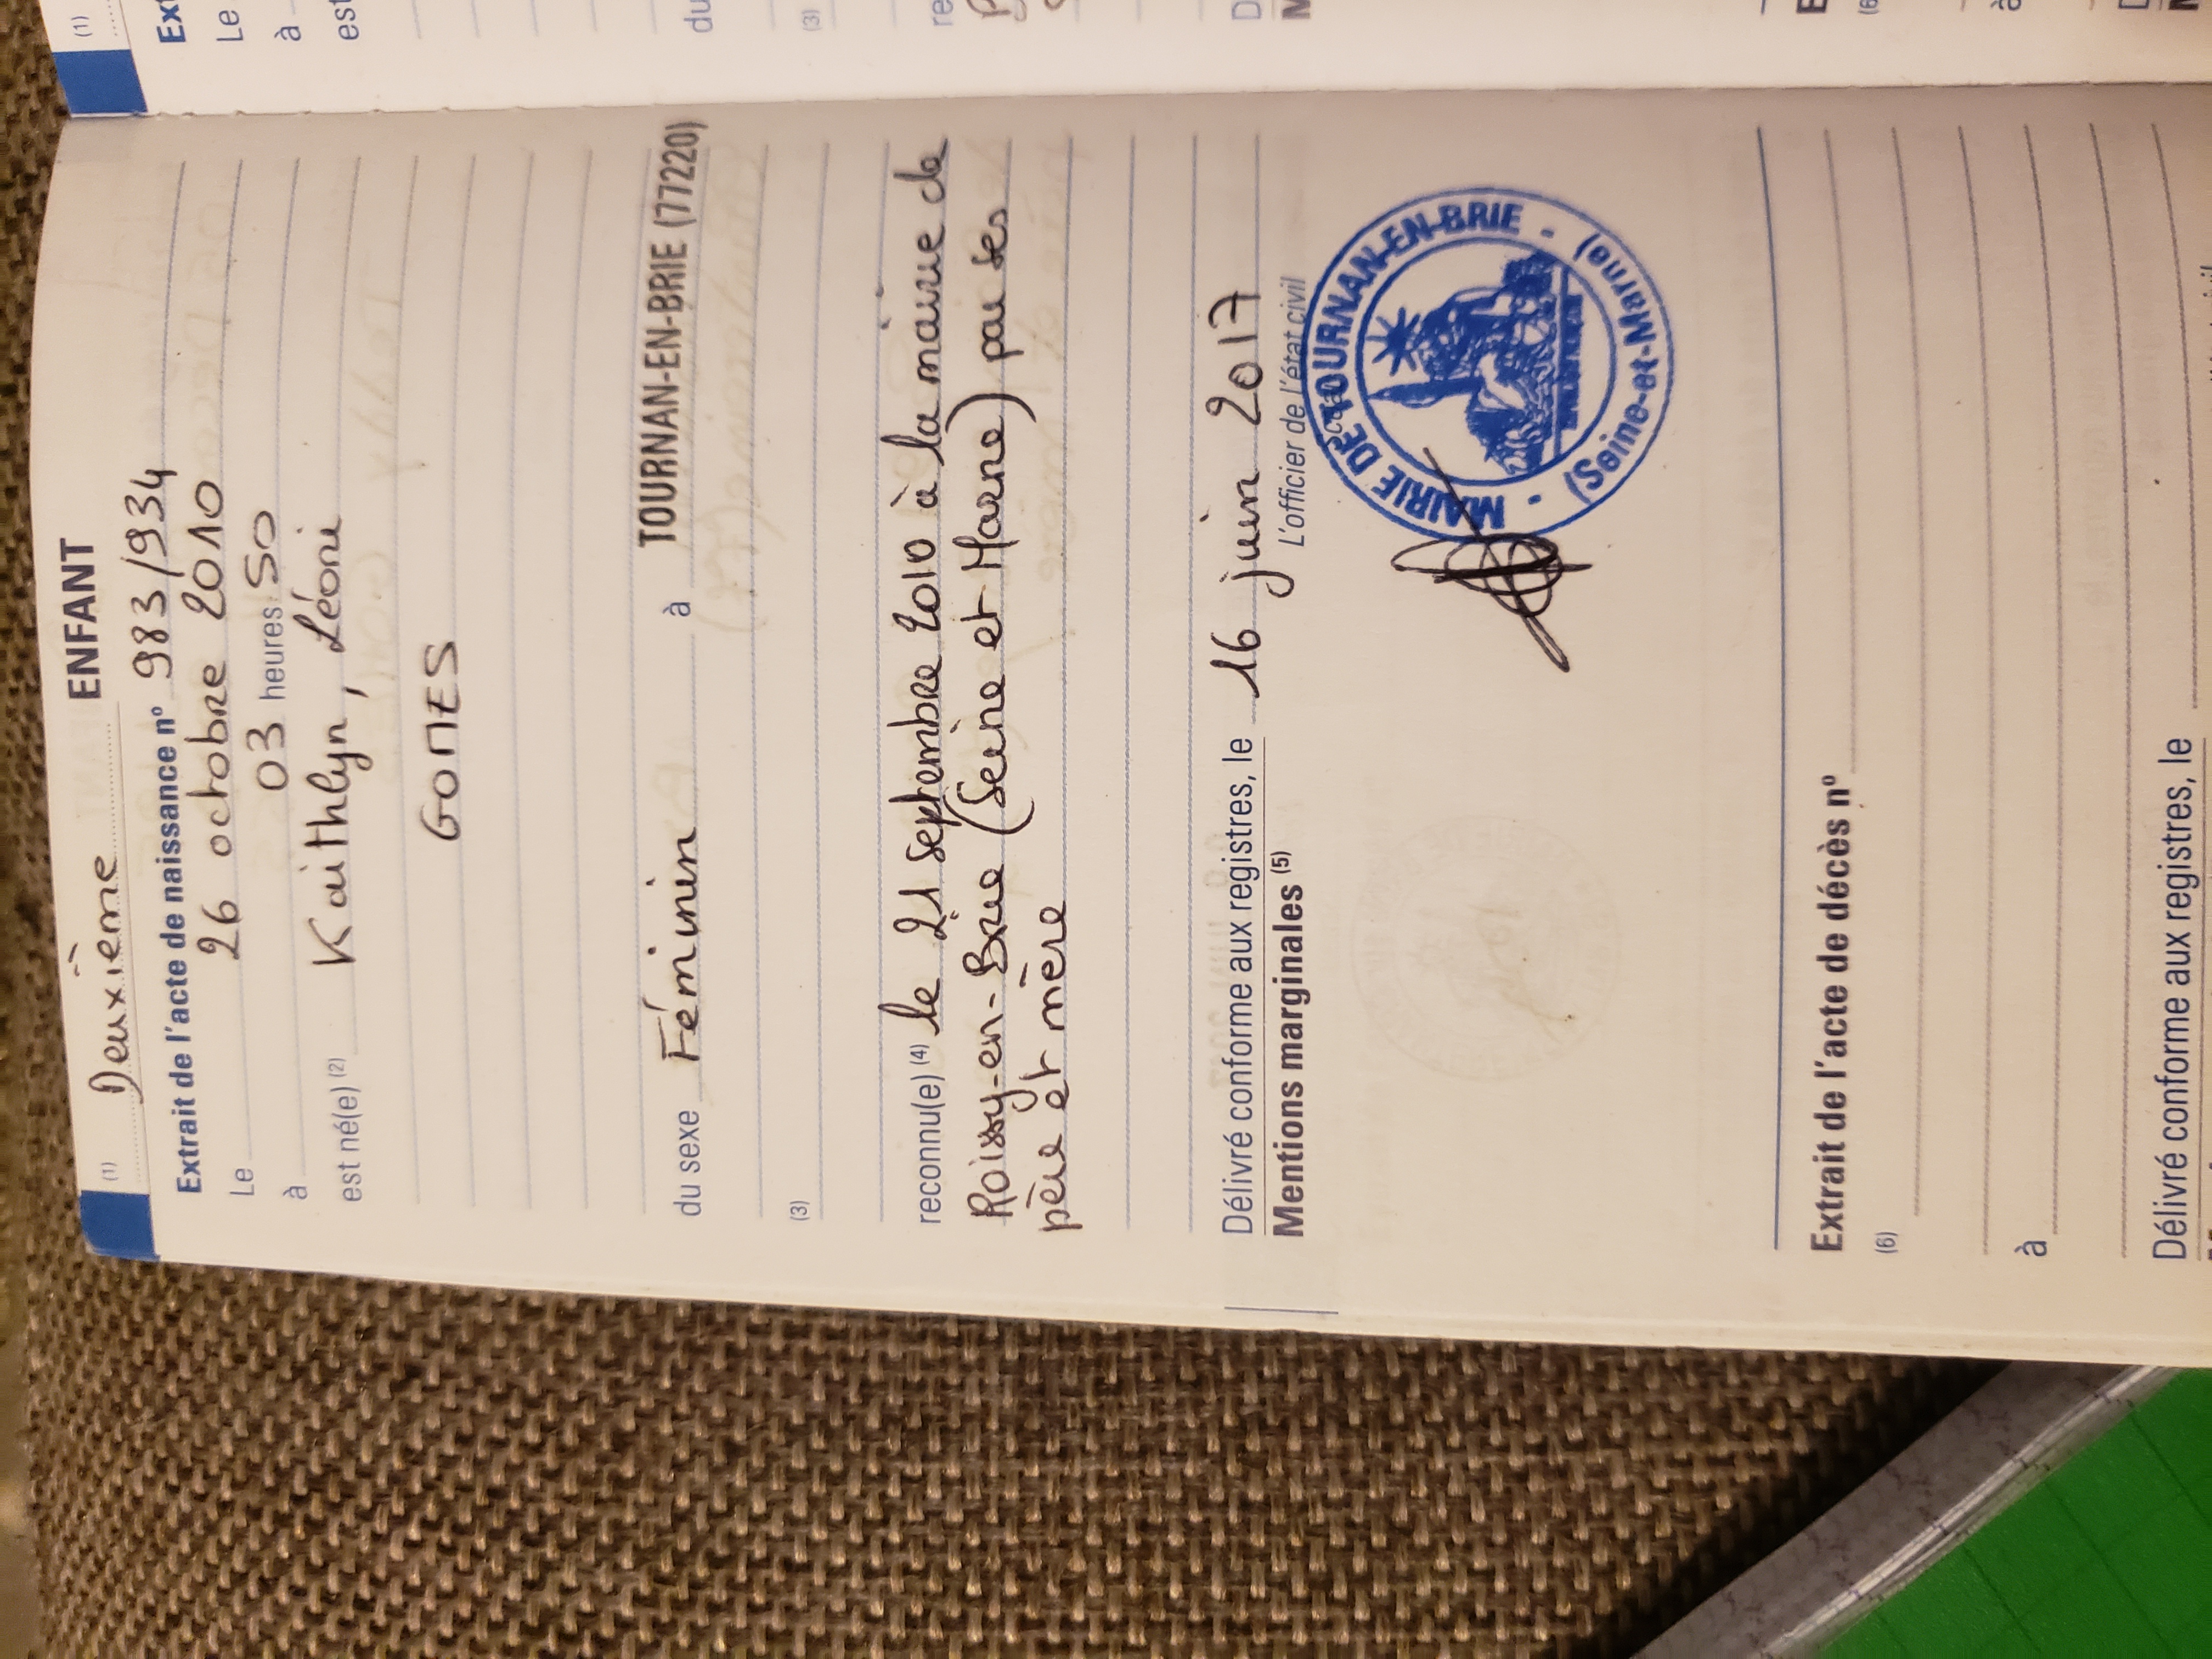 (1) Deuxième ENFANT
Extrait de l'acte de naissance nº 983/934
Le 26 octobre 2010
à 03 heures 50
est né(e) (2) Kaithlyn, Léonie
GOMES
du sexe Féminin à TOURNAN-EN-BRIE (77220)
(3)
reconnu(e) (4) le 21 septembre 2010 à la mairie de
Roissy-en-Brie (Seine et Marne) par ses
père et mère
Délivré conforme aux registres, le 16 juin 2017
Mentions marginales (5) L'officier de l'état civil
MAIRIE DE TOURNAN-EN-BRIE - (Seine-et-Marne) -
Extrait de l'acte de décès nº
(6)
à
Délivré conforme aux registres, le
(1)
Ext
Le
à
est
du
(3)
re
D
M